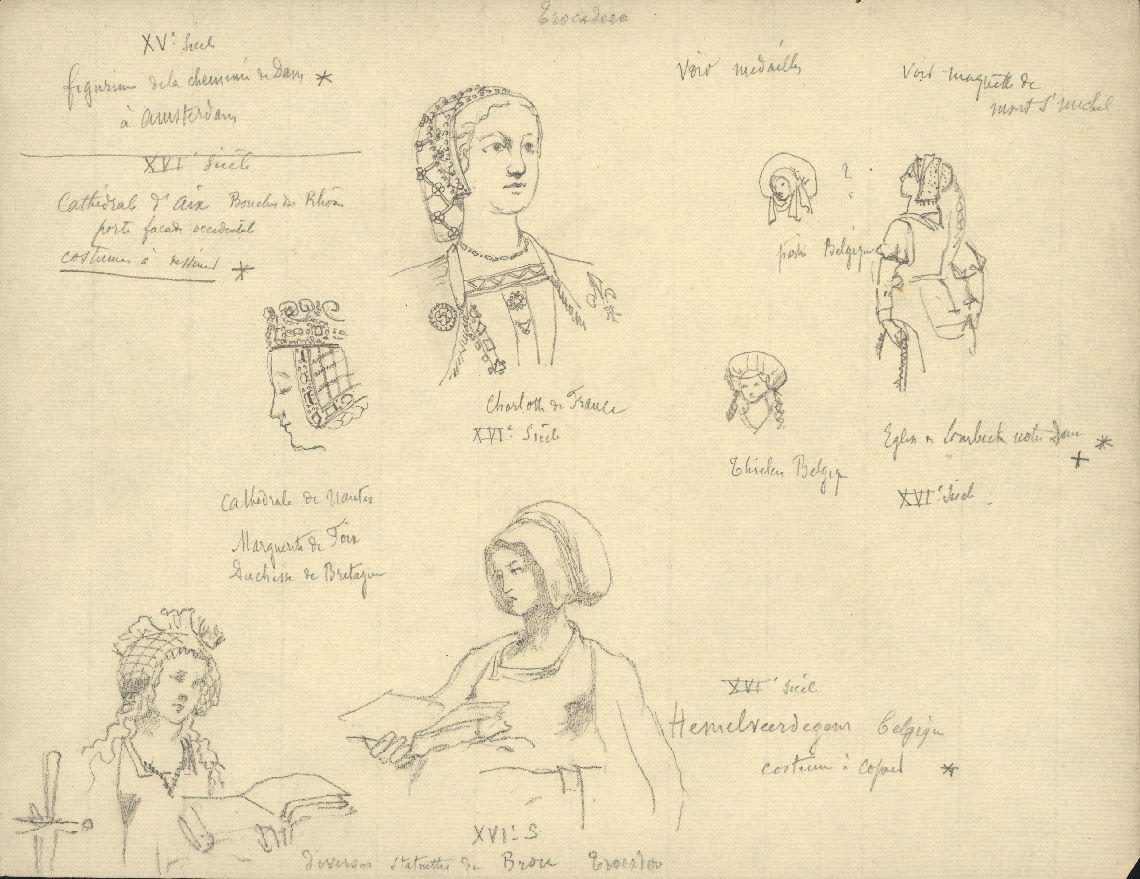 Trocadero
XVe Siecle
figurines de la cheminée de Dam *
à Amsterdam
XVIe Siècle
Cathédrale d'Aix Bouches du Rhône
porte façade occidental
costumes à dessiner *
Voir médailles
Voir maquette de
mont St michel
?
Belgique
Charlotte de France
XVIe Siècle
Thielen Belgique
Eglise de Lombeek notre Dame *
+
XVIe Siècle
Cathédrale de Nantes
Marguerite de Foix
Duchesse de Bretagne
XVIe Siècle
Hemelveerdegem Belgique
costume à copier *
XVIe S
diverses statuettes de Brou Trocadero